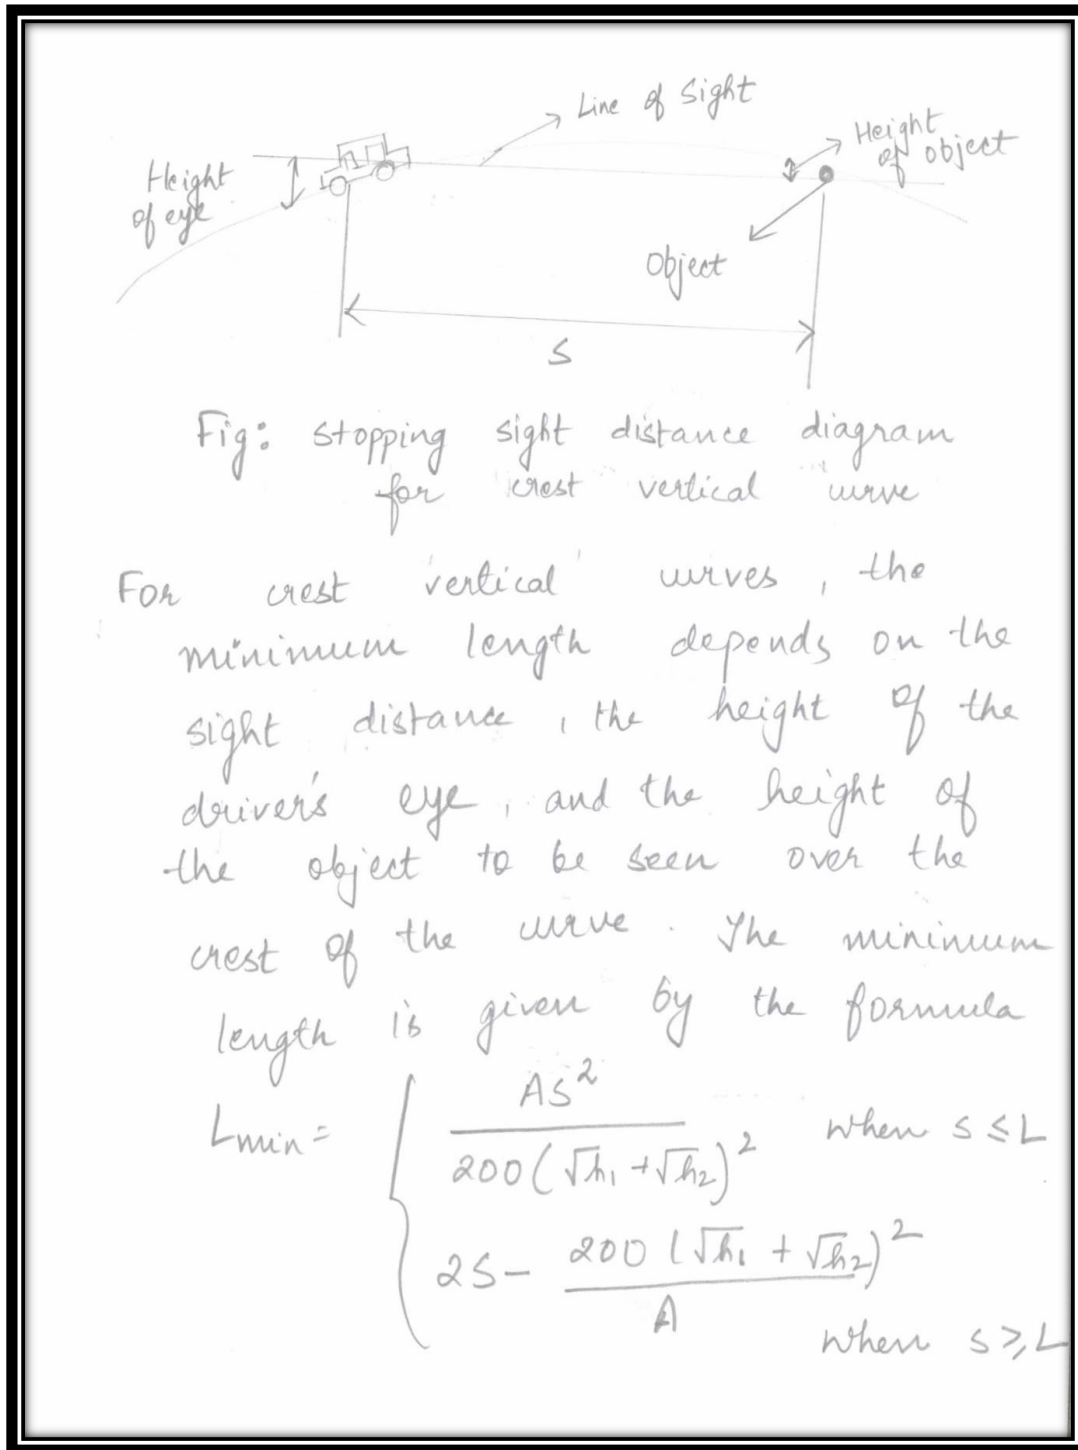 Line of Sight
Height
of object
Height
of eye
Object
S
Fig: stopping sight distance diagram
for crest vertical curve
For crest vertical curves, the
minimum length depends on the
sight distance, the height of the
driver's eye, and the height of
the object to be seen over the
crest of the curve. The minimum
length is given by the formula
Lmin = { AS² / 200(√h₁ + √h₂)² when S ≤ L
2S - 200(√h₁ + √h₂)² / A
when S ≥ L